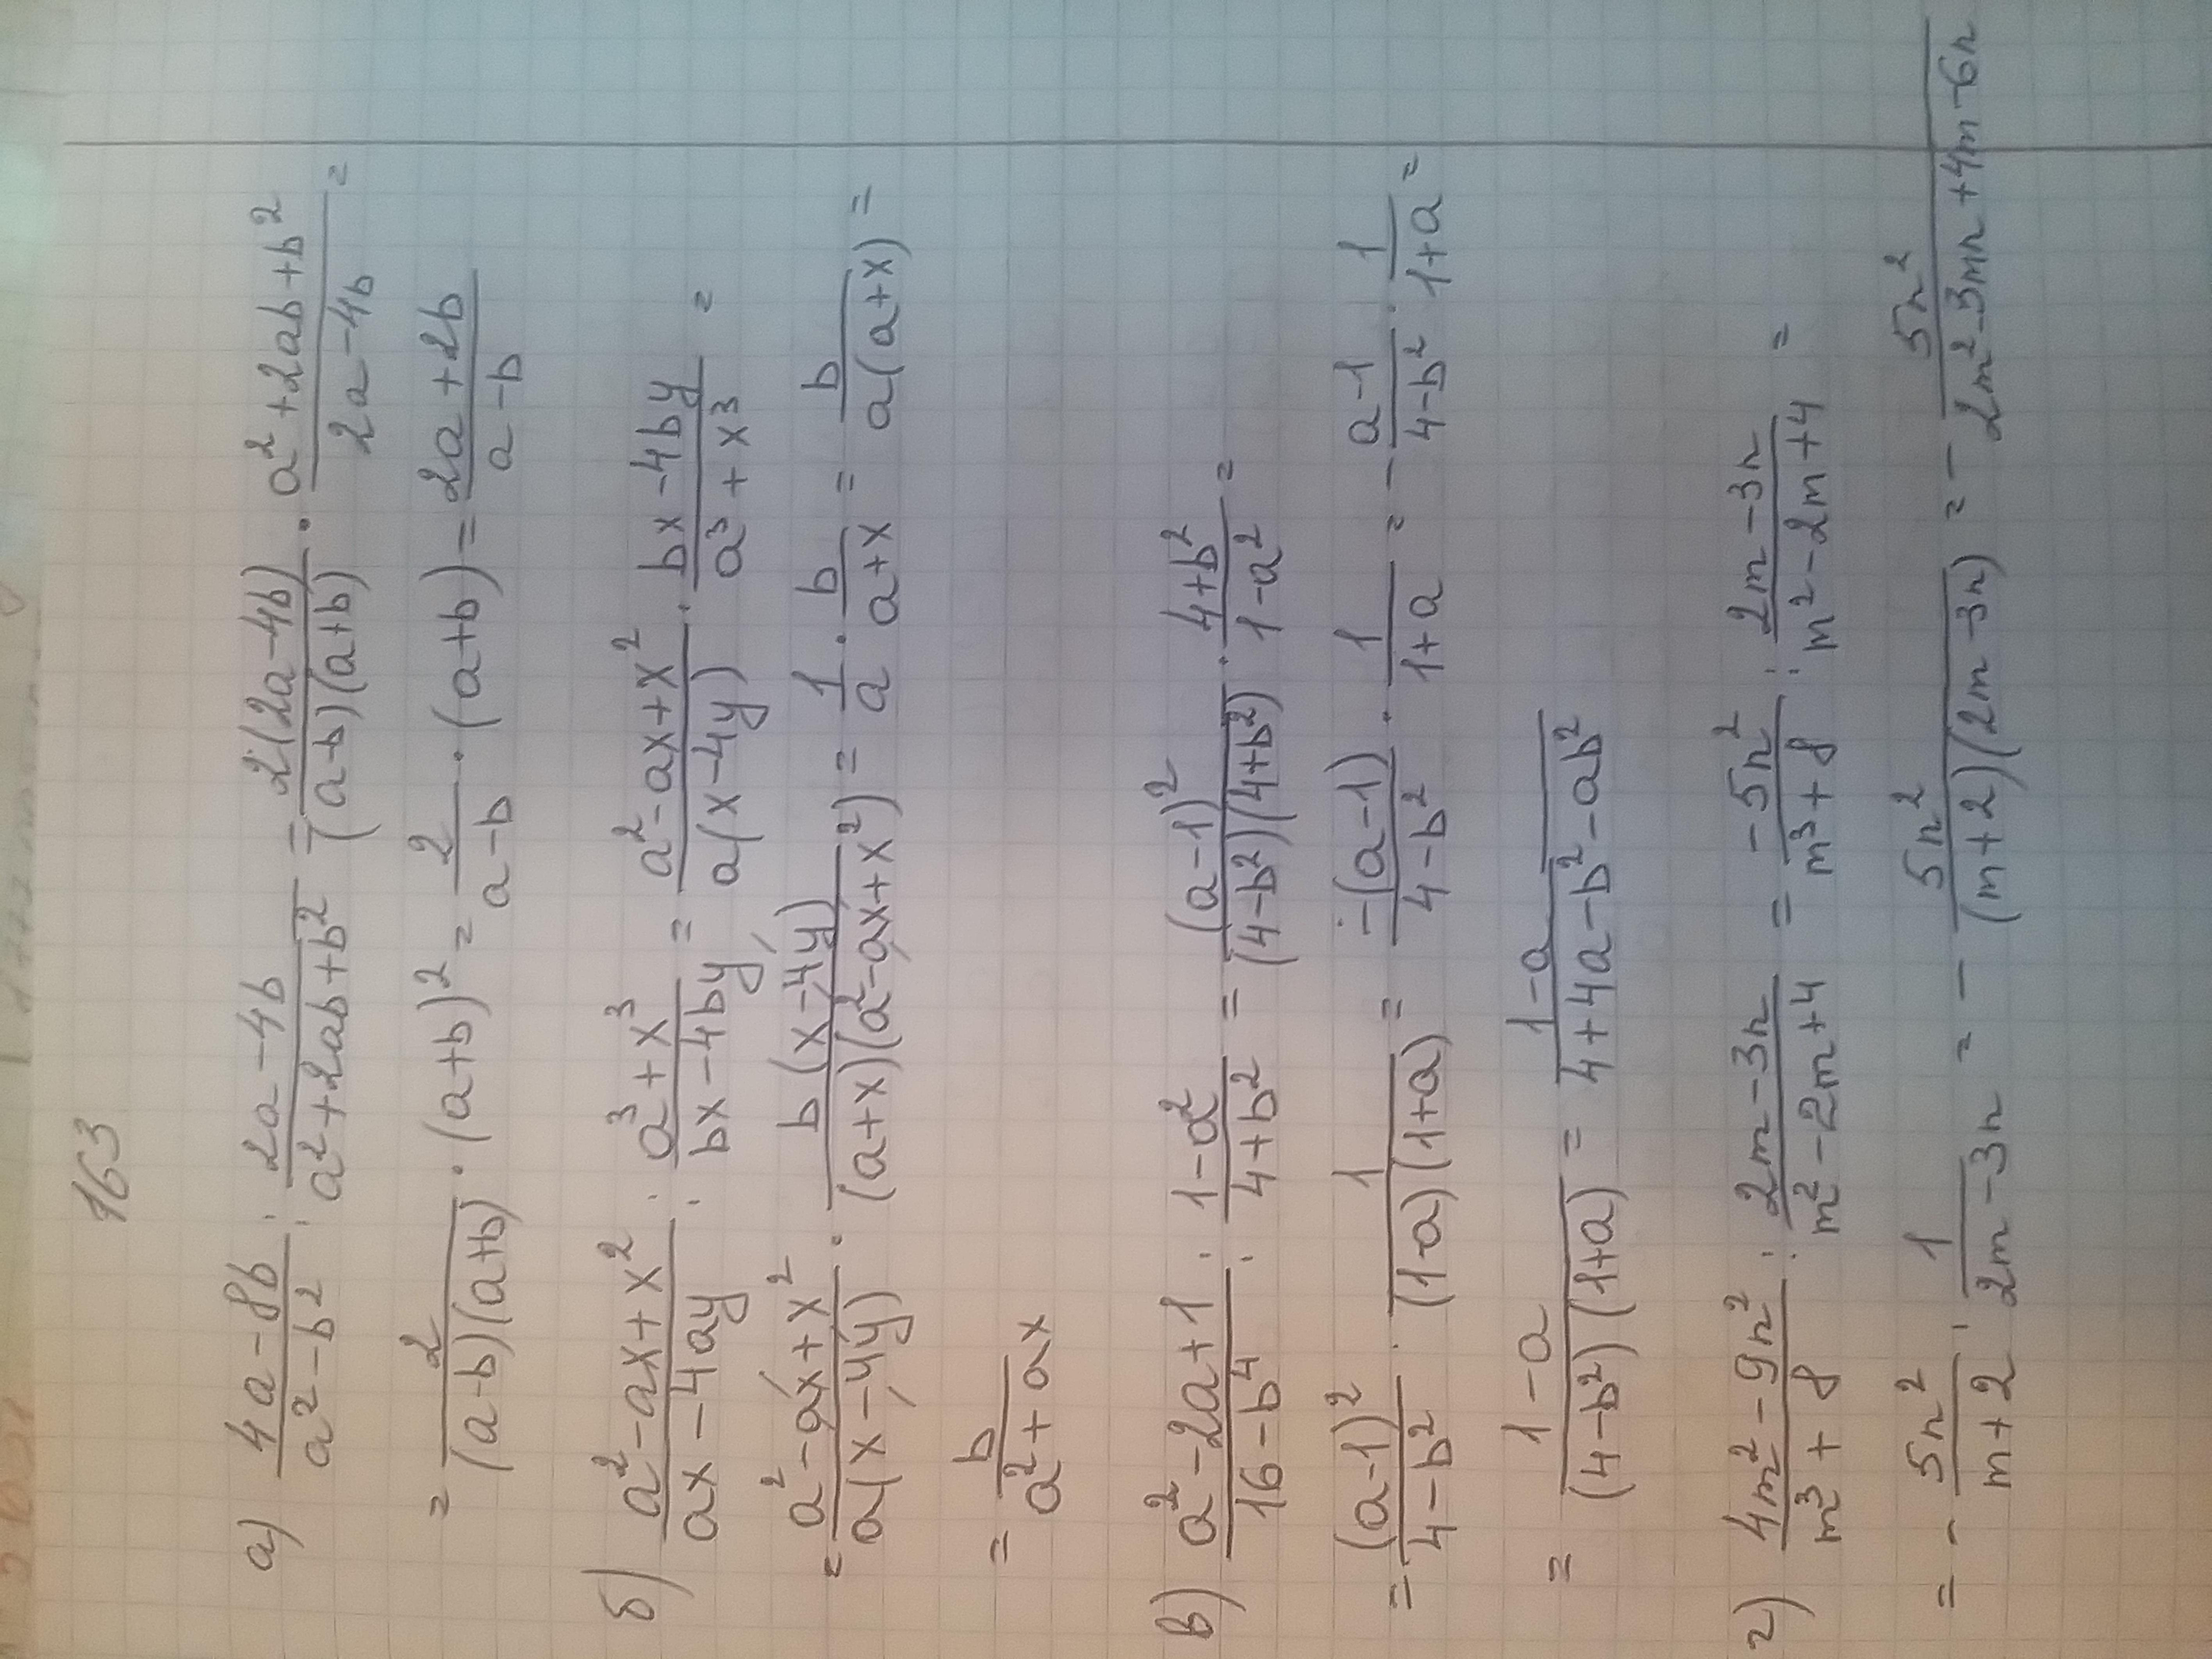 163
а) \frac{4a-8b}{a^2-b^2} : \frac{2a-4b}{a^2+2ab+b^2} = \frac{2(2a-4b)}{(a-b)(a+b)} \cdot \frac{a^2+2ab+b^2}{2a-4b} =
= \frac{2}{(a-b)(a+b)} \cdot (a+b)^2 = \frac{2}{a-b} \cdot (a+b) = \frac{2a+2b}{a-b}
б) \frac{a^2-ax+x^2}{ax-4ay} : \frac{a^3+x^3}{bx-4by} = \frac{a^2-ax+x^2}{a(x-4y)} \cdot \frac{bx-4by}{a^3+x^3} =
= \frac{a^2-ax+x^2}{a(x-4y)} \cdot \frac{b(x-4y)}{(a+x)(a^2-ax+x^2)} = \frac{1}{a} \cdot \frac{b}{a+x} = \frac{b}{a(a+x)} =
= \frac{b}{a^2+ax}
в) \frac{a^2-2a+1}{16-b^4} : \frac{1-a^2}{4+b^2} = \frac{(a-1)^2}{(4-b^2)(4+b^2)} \cdot \frac{4+b^2}{1-a^2} =
= \frac{(a-1)^2}{4-b^2} \cdot \frac{1}{(1-a)(1+a)} = \frac{-(a-1)}{4-b^2} \cdot \frac{1}{1+a} = -\frac{a-1}{4-b^2} \cdot \frac{1}{1+a} =
= \frac{1-a}{(4-b^2)(1+a)} = \frac{1-a}{4+4a-b^2-ab^2}
г) \frac{4m^2-9n^2}{m^3+8} : \frac{2m-3n}{m^2-2m+4} = \frac{-5n^2}{m^3+8} : \frac{2m-3n}{m^2-2m+4} =
= -\frac{5n^2}{m+2} \cdot \frac{1}{2m-3n} = -\frac{5n^2}{(m+2)(2m-3n)} = -\frac{5n^2}{2m^2-3mn+4m-6n}